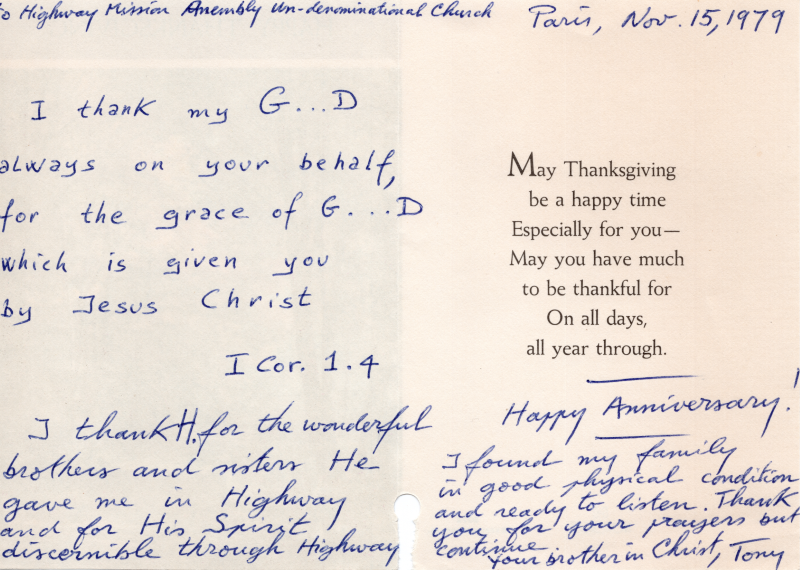 to Highway Mission Assembly Un-denominational Church
I thank my G...D
always on your behalf,
for the grace of G...D
which is given you
by Jesus Christ
I Cor. 1.4
I thank H. for the wonderful
brothers and sisters He
gave me in Highway
and for His Spirit
discernible through Highway
Paris, Nov. 15, 1979
May Thanksgiving
be a happy time
Especially for you—
May you have much
to be thankful for
On all days,
all year through.
Happy Anniversary!
I found my family
in good physical condition
and ready to listen. Thank
you for your prayers but
continue
Your brother in Christ, Tony